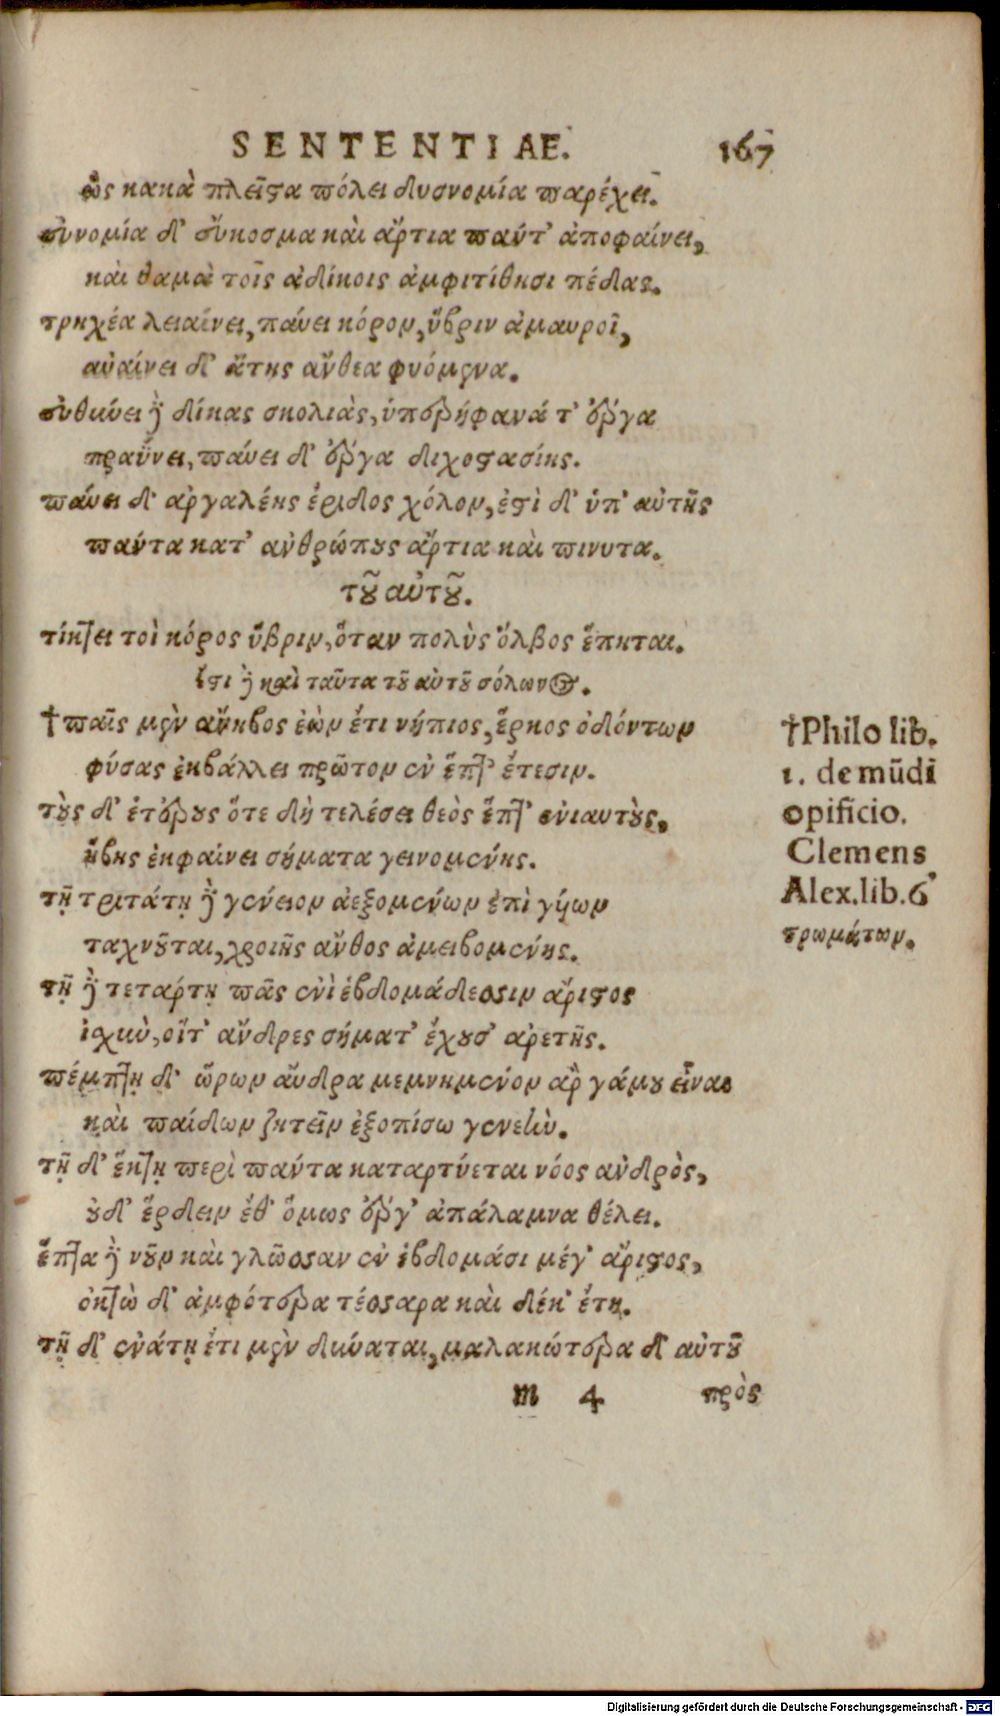 SENTENTIAE. 167
ὡς κακὰ πλεῖστα πόλει δυσνομία παρέχει.
εὐνομία δ' εὔκοσμα καὶ ἄρτια πάντ' ἀποφαίνει,
καὶ θαμὰ τοῖς ἀδίκοις ἀμφιτίθησι πέδας.
τρηχέα λειαίνει, παύει κόρον, ὕβριν ἀμαυροῖ,
αὐαίνει δ' ἄτης ἄνθεα φυόμενα.
εὐθύνει δὲ δίκας σκολιὰς, ὑπερήφανά τ' ἔργα
πραΰνει, παύει δ' ἔργα διχοστασίης.
παύει δ' ἀργαλέης ἔριδος χόλον, ἐστὶ δ' ὑπ' αὐτῆς
πάντα κατ' ἀνθρώπους ἄρτια καὶ πινυτα.
τοῦ αὐτοῦ.
τίκτει τοὶ κόρος ὕβριν, ὅταν πολὺς ὄλβος ἕπηται.
ἔστι δὲ καὶ ταῦτα τοῦ αὐτοῦ σόλωνος.
†παῖς μὲν ἄνηβος ἐὼν ἔτι νήπιος, ἕρκος ὀδόντων
φύσας ἐκβάλλει πρῶτον ἐν ἕπτ' ἔτεσιν.
τοὺς δ' ἑτέρους ὅτε δὴ τελέσει θεὸς ἕπτ' ἐνιαυτοὺς,
ἥβης ἐκφαίνει σήματα γεινομένης.
τῇ τριτάτῃ δὲ γένειον ἀεξομένων ἐπὶ γύων
ταχνοῦται, χροιῆς ἄνθος ἀμειβομένης.
τῇ δὲ τετάρτῃ πᾶς ἐνὶ ἑβδομάδεσσιν ἄριστος
ἰσχὺν, οἵτ' ἄνδρες σήματ' ἔχουσ' ἀρετῆς.
πέμπτῃ δ' ὥρων ἄνδρα μεμνημένον ἂρ γάμου εἶναι
καὶ παίδων ζητεῖν ἐξοπίσω γενεὴν.
τῇ δ' ἕκτῃ περὶ πάντα καταρτύεται νόος ἀνδρὸς,
οὐδ' ἔρδειν ἔθ' ὅμως ἔργ' ἀπάλαμνα θέλει.
ἕπτα δὲ νοῦν καὶ γλῶσσαν ἐν ἑβδομάσι μέγ' ἄριστος,
ὀκτὼ δ' ἀμφότερα τέσσαρα καὶ δέκ' ἔτη.
τῇ δ' ἐνάτῃ ἔτι μὲν δύναται, μαλακώτερα δ' αὐτοῦ
m 4 πρὸς
†Philo lib.
1. de mūdi
opificio.
Clemens
Alex. lib. 6
τρωμάτων.
Digitalisierung gefördert durch die Deutsche Forschungsgemeinschaft - DFG